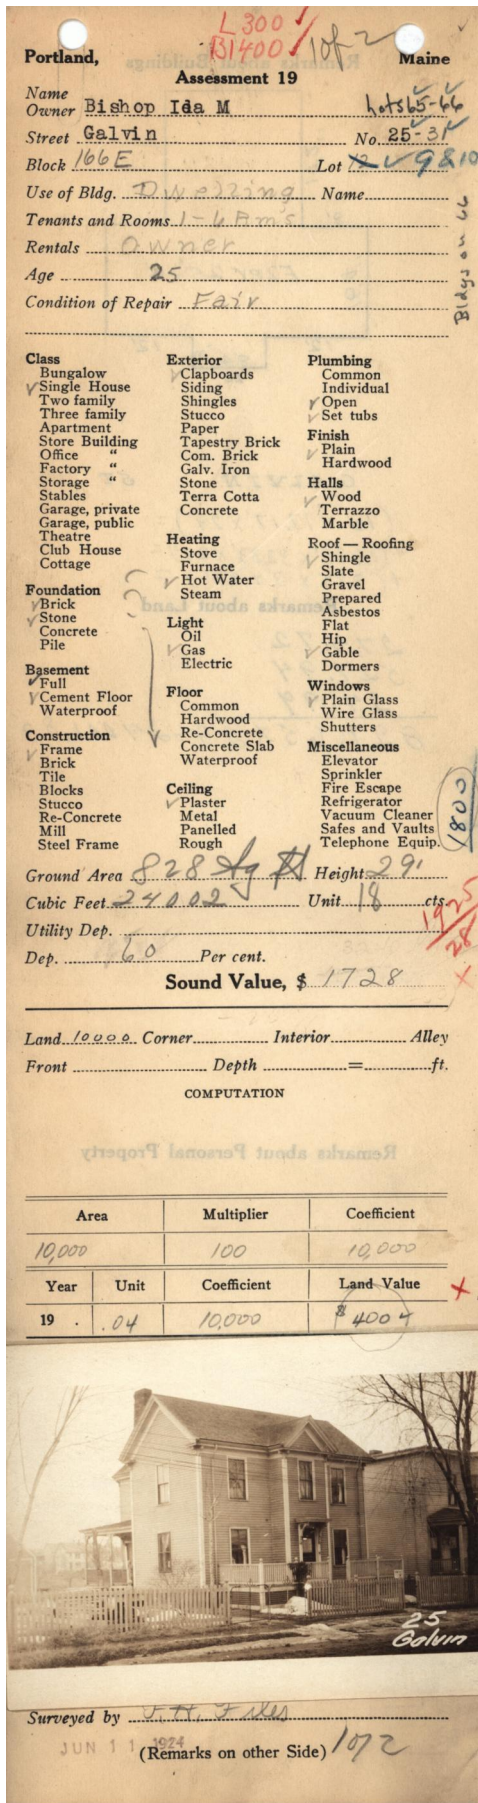 L 300 /
B1400 / 1 of 2
Portland, Maine
Assessment 19
Name
Owner Bishop Ida M lots 65-66
Street Galvin No. 25-31
Block 166 E Lot 9 & 10
Use of Bldg. Dwelling Name
Tenants and Rooms 1-6 Rms
Rentals Owner
Age 25
Condition of Repair Fair
Bldgs on 66
Class
Bungalow
✓ Single House
Two family
Three family
Apartment
Store Building
Office "
Factory "
Storage "
Stables
Garage, private
Garage, public
Theatre
Club House
Cottage
Foundation
✓ Brick
✓ Stone
Concrete
Pile
Basement
✓ Full
✓ Cement Floor
Waterproof
Construction
✓ Frame
Brick
Tile
Blocks
Stucco
Re-Concrete
Mill
Steel Frame
Exterior
✓ Clapboards
Siding
Shingles
Stucco
Paper
Tapestry Brick
Com. Brick
Galv. Iron
Stone
Terra Cotta
Concrete
Heating
Stove
Furnace
✓ Hot Water
Steam
Light
Oil
✓ Gas
Electric
Floor
Common
Hardwood
Re-Concrete
Concrete Slab
Waterproof
Ceiling
✓ Plaster
Metal
Panelled
Rough
Plumbing
Common
Individual
✓ Open
✓ Set tubs
Finish
✓ Plain
Hardwood
Halls
✓ Wood
Terrazzo
Marble
Roof — Roofing
✓ Shingle
Slate
Gravel
Prepared
Asbestos
Flat
Hip
✓ Gable
Dormers
Windows
✓ Plain Glass
Wire Glass
Shutters
Miscellaneous
Elevator
Sprinkler
Fire Escape
Refrigerator
Vacuum Cleaner
Safes and Vaults
Telephone Equip.
1800
Ground Area 828 Sq ft Height 29'
Cubic Feet 24002 Unit 18 cts.
1925/28
Utility Dep.
Dep. 60 Per cent.
Sound Value, $ 1728
Land 10000 Corner Interior Alley
Front Depth = ft.
COMPUTATION
Remarks about Personal Property
Area Multiplier Coefficient
10,000 100 10,000
Year Unit Coefficient Land Value
19 . .04 10,000 $ 400
25
Galvin
Surveyed by J. H. Files
JUN 11 1924
(Remarks on other Side) 1 of 2